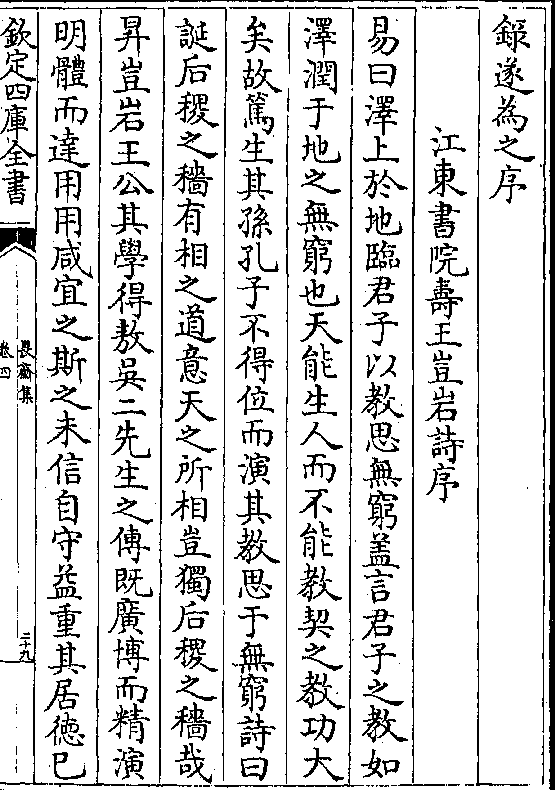 錄遂為之序
江東書院壽王豈岩詩序
易曰澤上於地臨君子以教思無窮盖言君子之教如
澤潤于地之無窮也天能生人而不能教契之教功大
矣故篤生其孫孔子不得位而演其教思于無窮詩曰
誕后稷之穡有相之道意天之所相豈獨后稷之穡哉
昇豈岩王公其學得敖吳二先生之傳既廣博而精演
明體而達用用咸宜之斯之未信自守益重其居徳已
欽定四庫全書
畏齋集
卷四
三十九